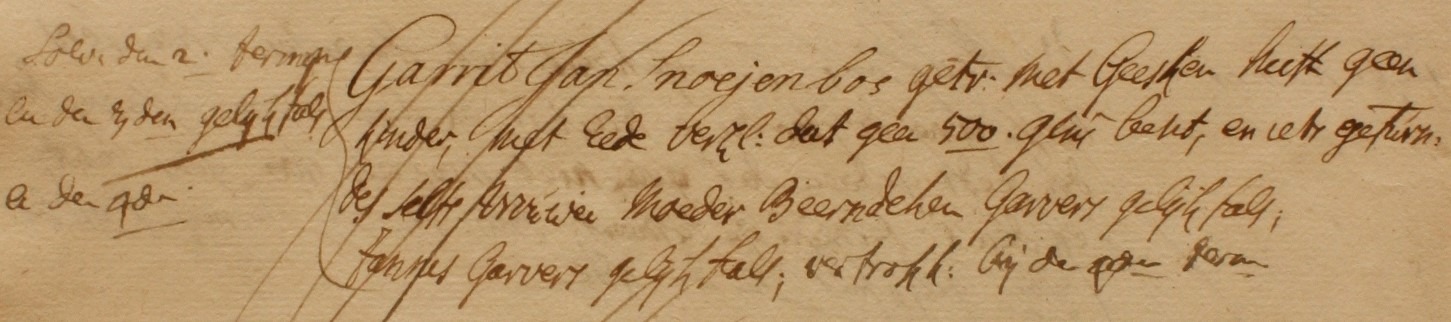 Solv: den 2. termijn
en den 3den gelijkfals
en den 4den
Garrit Jan Snoejenbos getr: met Geesken heeft geen
kinder, met Eede verkl: dat geen 500. guls besit, en iets
des selfs vrouwen Moeder Beerndeken Garvers gelijkfals,
Jannes Garvers gelijkfals, vertrokk: bij de 4den term